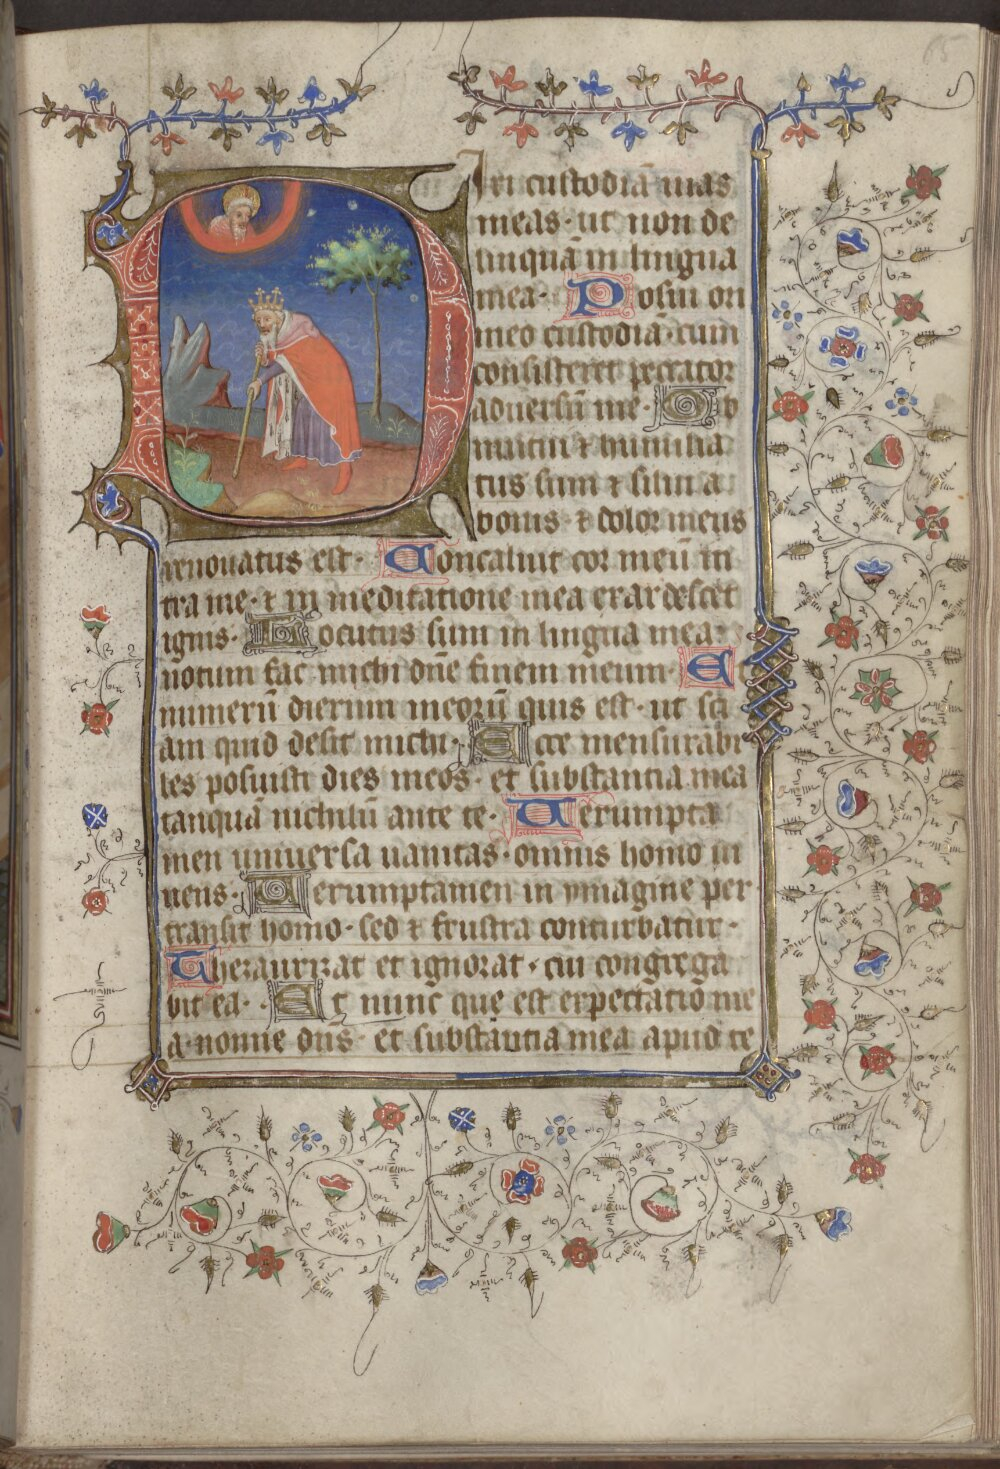 65
Dixi custodiā uias
meas· ut non de
linquā in lingua
mea· Posui ori
meo custodiā· cum
consisteret peccator
aduersū me· Ob
mutui ⁊ humilia
tus sum ⁊ silui a
bonis· ⁊ dolor meus
renouatus est· Concaluit cor meū in
tra me· ⁊ in meditatione mea exardescet
ignis· Locutus sum in lingua mea·
notum fac michi dn̄e finem meum· Et
numerū dierum meorū quis est· ut sci
am quid desit michi· Ecce mensurabi
les posuisti dies meos· et substantia mea
tanquā nichilū ante te· Uerumpta
men uniuersa uanitas· omnis homo ui
uens· Uerumptamen in ymagine per
transit homo· sed ⁊ frustra conturbatur·
Thezaurizat et ignorat· cui congrega
bit ea· Et nunc que est expectatio me
a· nonne dn̄s· et substantia mea apud te